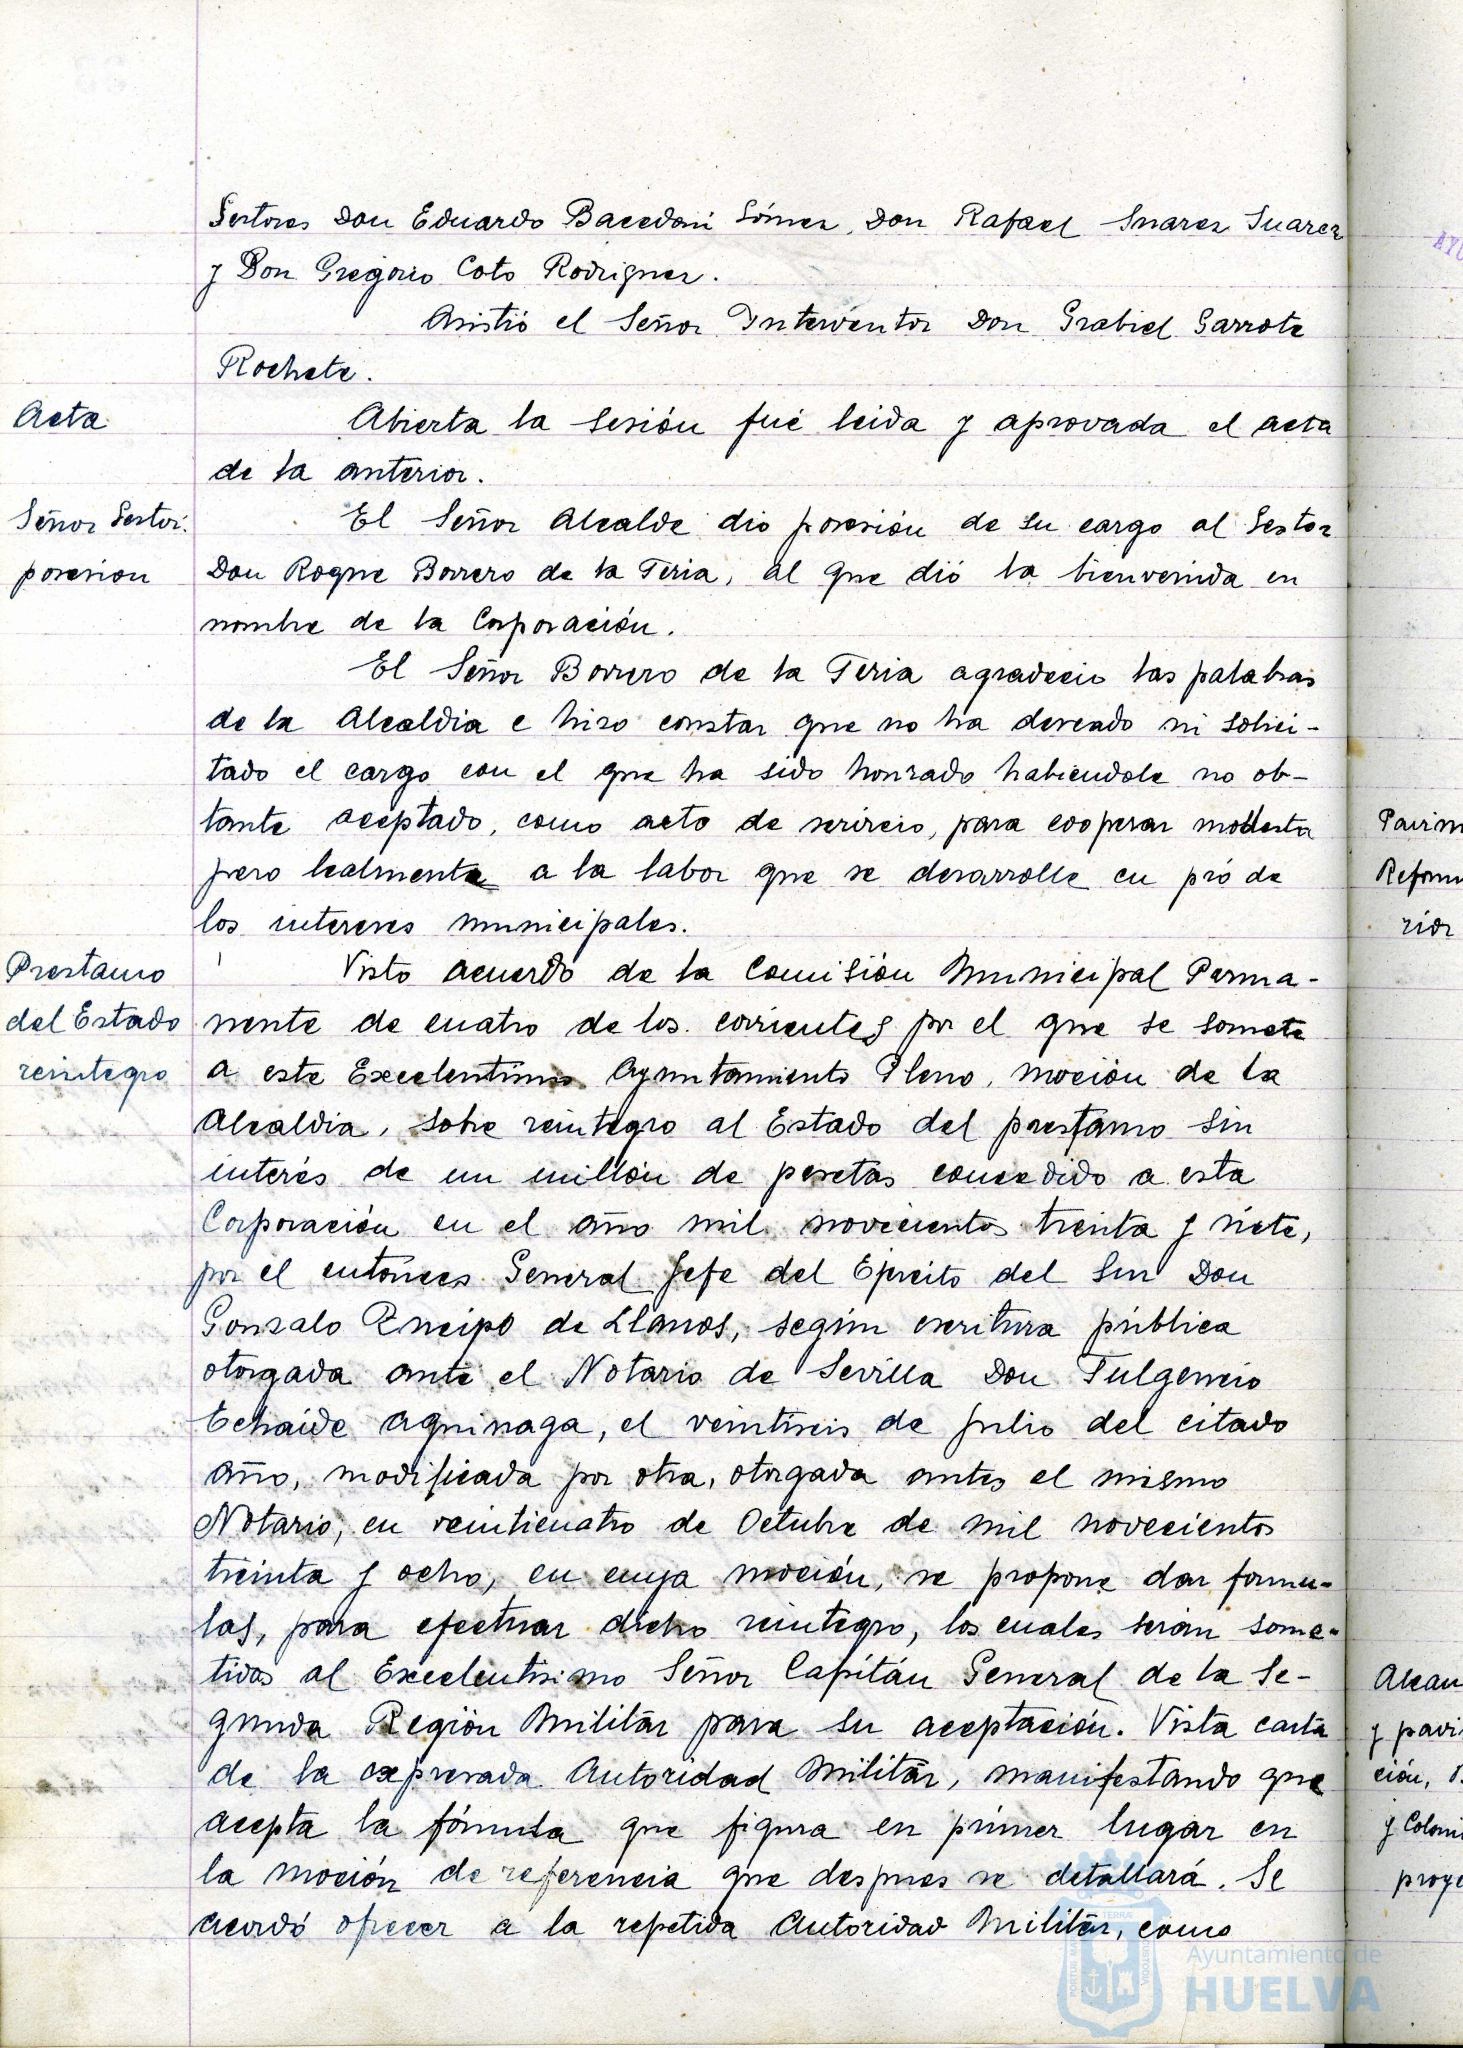 Gestores Don Eduardo Bacedoni Gómez, Don Rafael Suarez Suarez
y Don Gregorio Coto Rodriguez.
Asistió el Señor Interventor Don Grabiel Garrote
Rochete.
Acta
Abierta la sesión fué leida y aprovada el acta
de la anterior.
Señor Gestor.
posesion
El Señor Alcalde dio posesión de su cargo al Gestor
Don Roque Borrero de la Feria, al que dió la bienvenida en
nombre de la Corporación.
El Señor Borrero de la Feria agradecio las palabras
de la Alcaldia e hizo constar que no ha deseado ni solici-
tado el cargo con el que ha sido honrado habiendole no ob-
tante aceptado, como acto de servicio, para cooperar modesta
pero lealmente a la labor que se desarrolle en pró de
los intereses municipales.
Prestamo
del Estado
reintegro
Visto acuerdo de la Comisión Municipal Perma-
nente de cuatro de los corrientes por el que se somete
a este Excelentisimo Ayuntamiento Pleno, moción de la
Alcaldia, sobre reintegro al Estado del prestamo sin
interés de un millón de pesetas concedido a esta
Corporación en el año mil novecientos treinta y siete,
por el entonces General Jefe del Ejercito del Sur Don
Gonzalo Queipo de Llanos, según escritura pública
otorgada ante el Notario de Sevilla Don Fulgencio
Echaide Aguinaga, el veintiseis de julio del citado
año, modificada por otra, otorgada antes el mismo
Notario, en veinticuatro de Octubre de mil novecientos
treinta y ocho, en cuya moción, se propone dar formu-
las, para efectuar dicho reintegro, los cuales serán some-
tidas al Excelentisimo Señor Capitán General de la Se-
gunda Región Militar para su aceptación. Vista carta
de la expresada Autoridad Militar, manifestando que
acepta la fórmula que figura en primer lugar en
la moción de referencia que despues se detallará. Se
acordó ofrecer a la repetida Autoridad Militar, como
Ayuntamiento de
HUELVA
AYU
Pavim
Reform
ridr
Alcan
y pavi
ción, 
y Coloni
proye